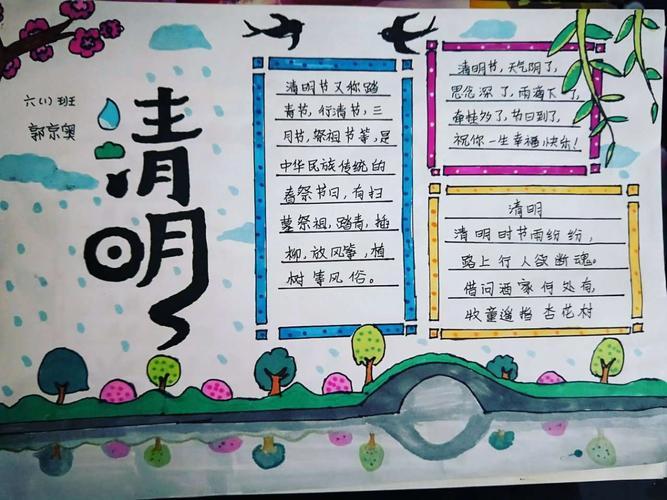 六(1)班
郭京奥
清明
清明节又称踏
青节,行清节,三
月节,祭祖节等,是
中华民族传统的
春祭节日,有扫
墓祭祖,踏青,插
柳,放风筝,植
树等风俗。
清明节,天气阴了,
思念深了,雨滴下了,
牵挂多了,节日到了,
祝你一生幸福快乐!
清明
清明时节雨纷纷,
路上行人欲断魂。
借问酒家何处有
牧童遥指杏花村